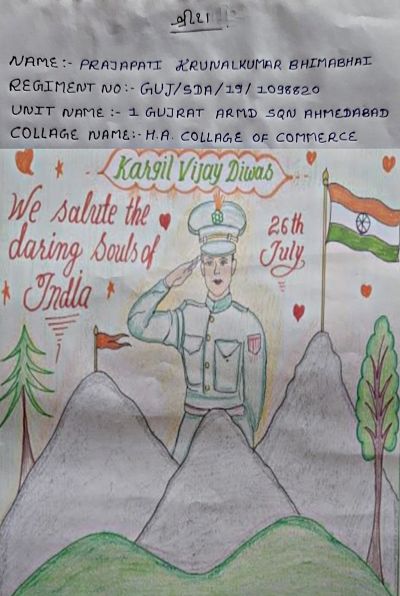 NAME:- PRAJAPATI KRUNALKUMAR BHIMABHAI
REGIMENT NO:- GUJ/SDA/19/1098820
UNIT NAME:- 1 GUJRAT ARMD SQN AHMEDABAD
COLLAGE NAME:- H.A. COLLAGE OF COMMERCE
Kargil Vijay Diwas
We salute the
daring souls of
India
26th
July